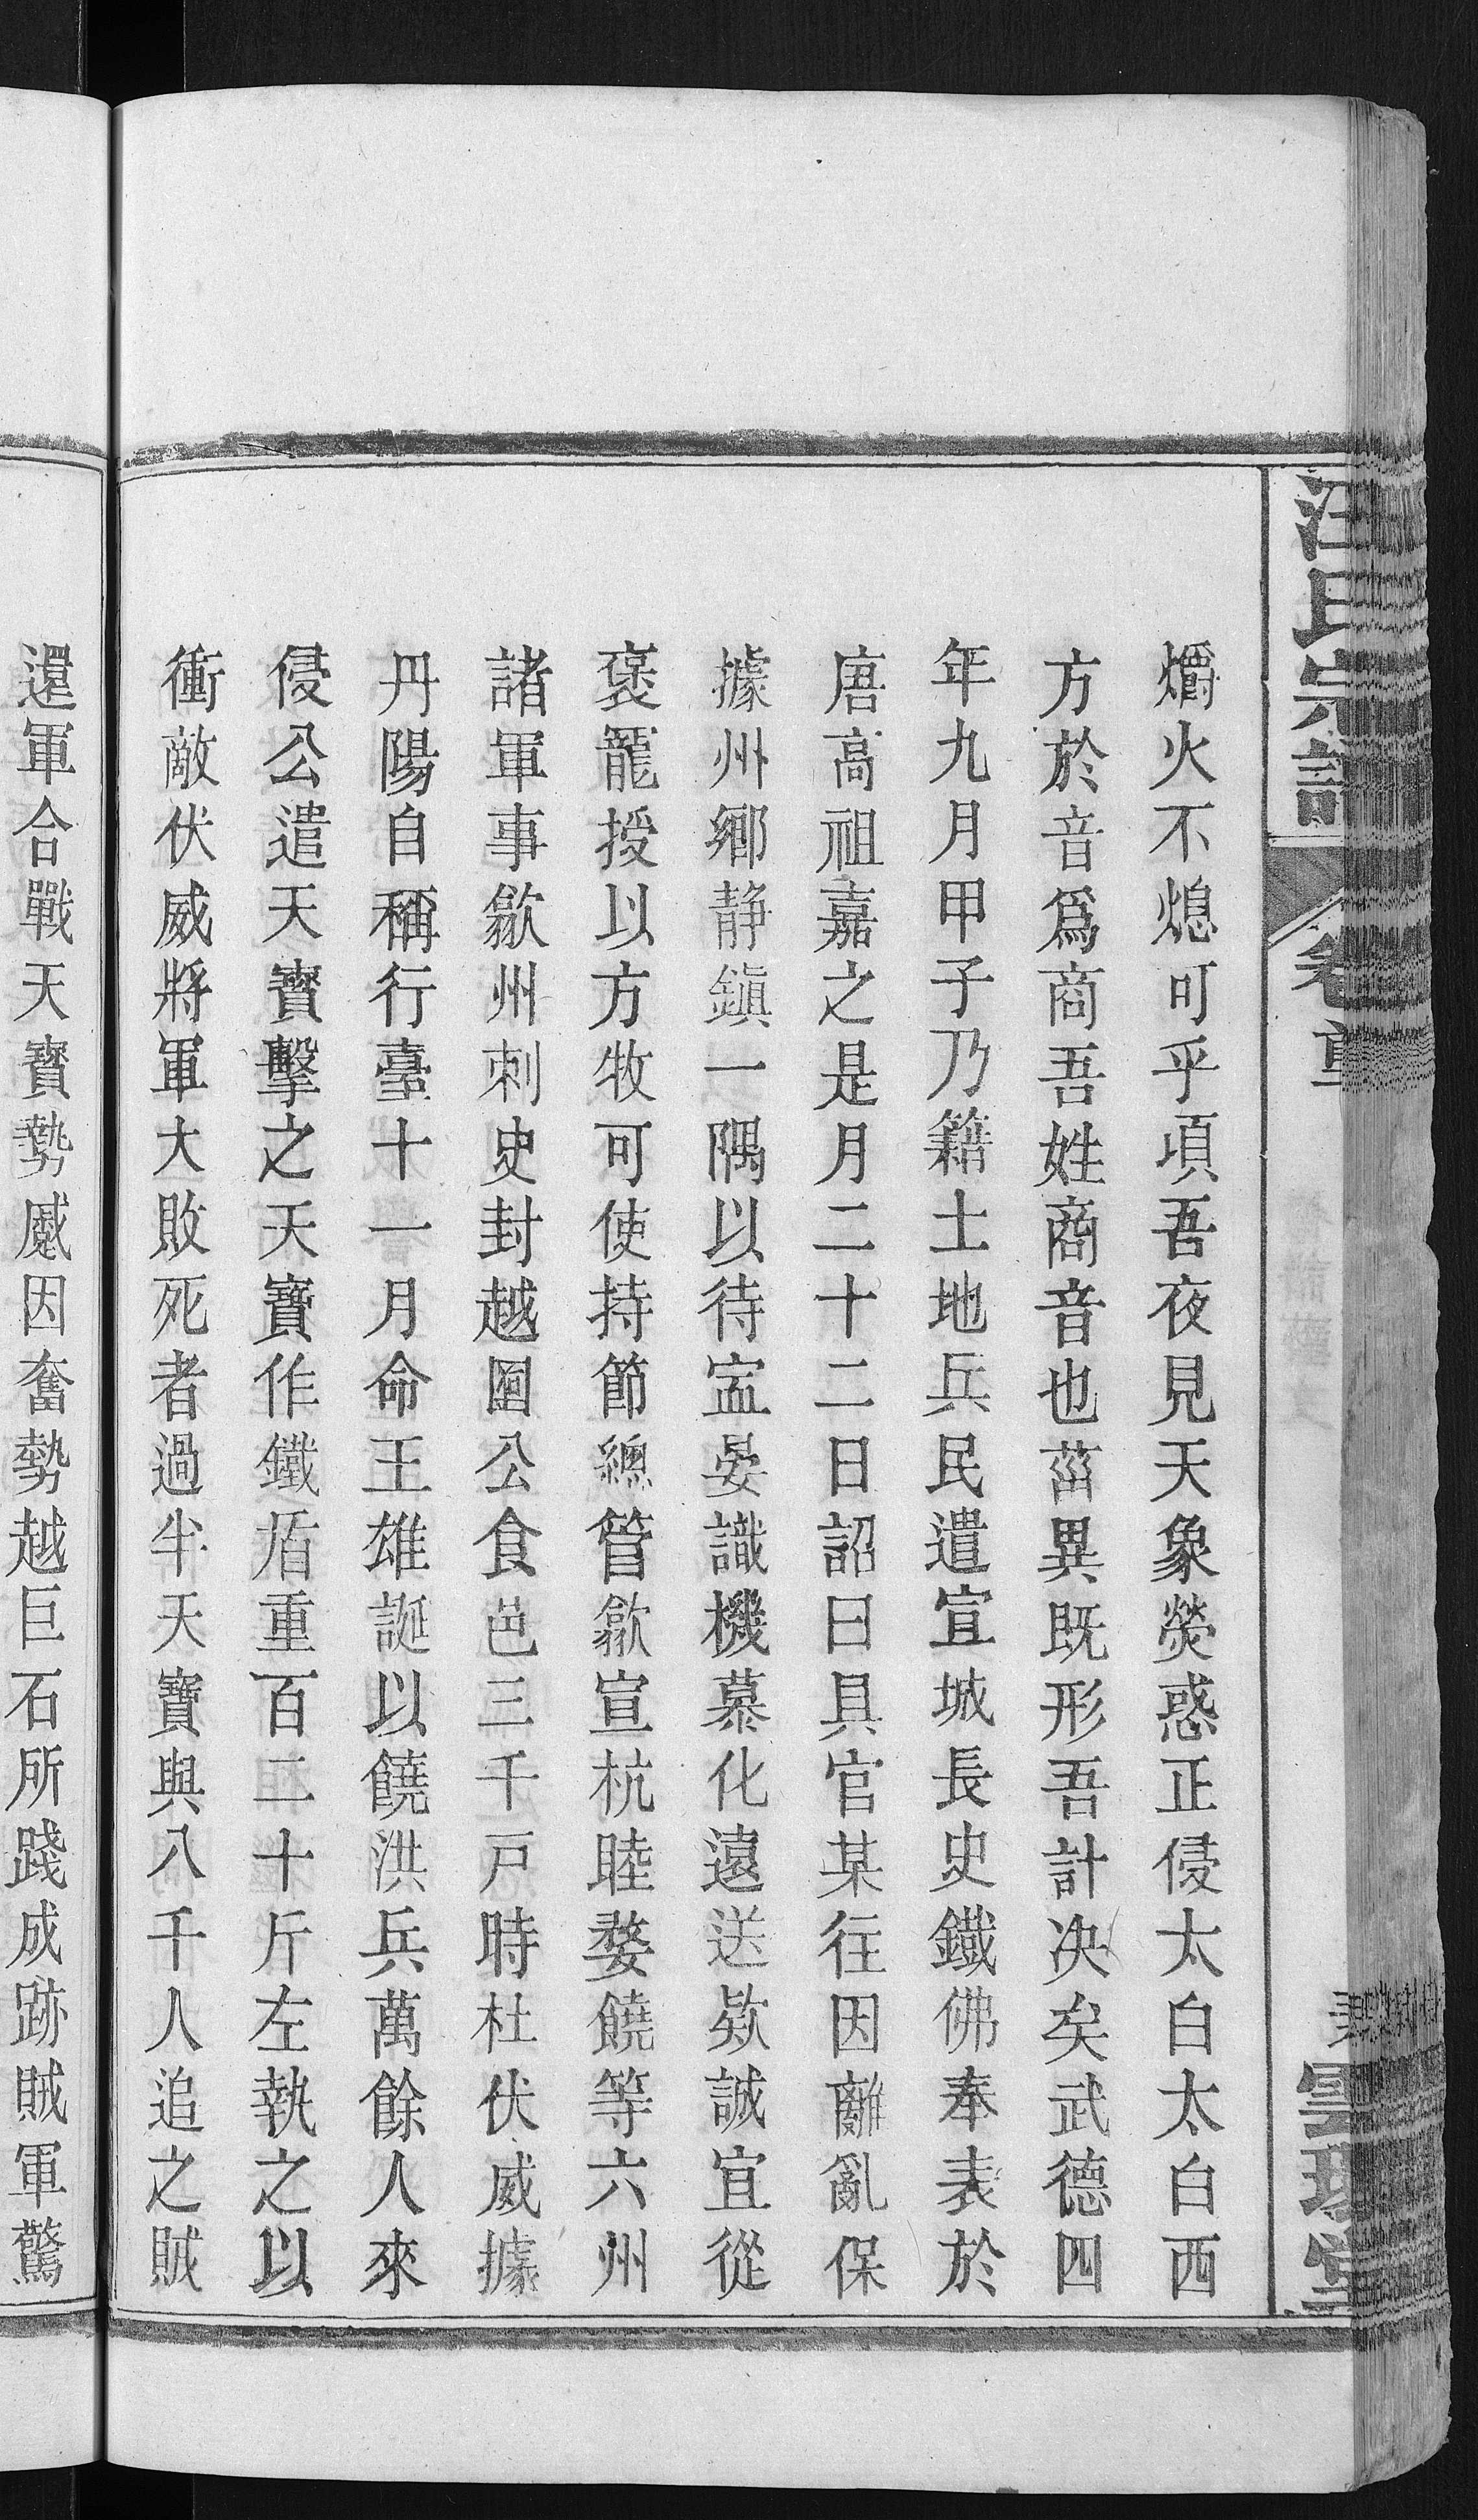 汪氏宗譜
卷首
雲
爝火不熄可乎頃吾夜見天象熒惑正侵太白太白西
方於音爲商吾姓商音也菑異既形吾計决矣武德四
年九月甲子乃籍土地兵民遣宣城長史鐵佛奉表於
唐高祖嘉之是月二十二日詔曰具官某往因離亂保
據州鄉静鎮一隅以待寍晏識機慕化遠送欵誠宜從
褒寵授以方牧可使持節總管歙宣杭睦婺饒等六州
諸軍事歙州刺史封越國公食邑三千戸時杜伏威據
丹陽自稱行臺十一月命王雄誕以饒洪兵萬餘人來
侵公遣天寶擊之天寶作鐵盾重百二十斤左執之以
衝敵伏威將軍大敗死者過半天寶與八千人追之賊
還軍合戰天寶勢蹙因奮勢越巨石所踐成跡賊軍驚